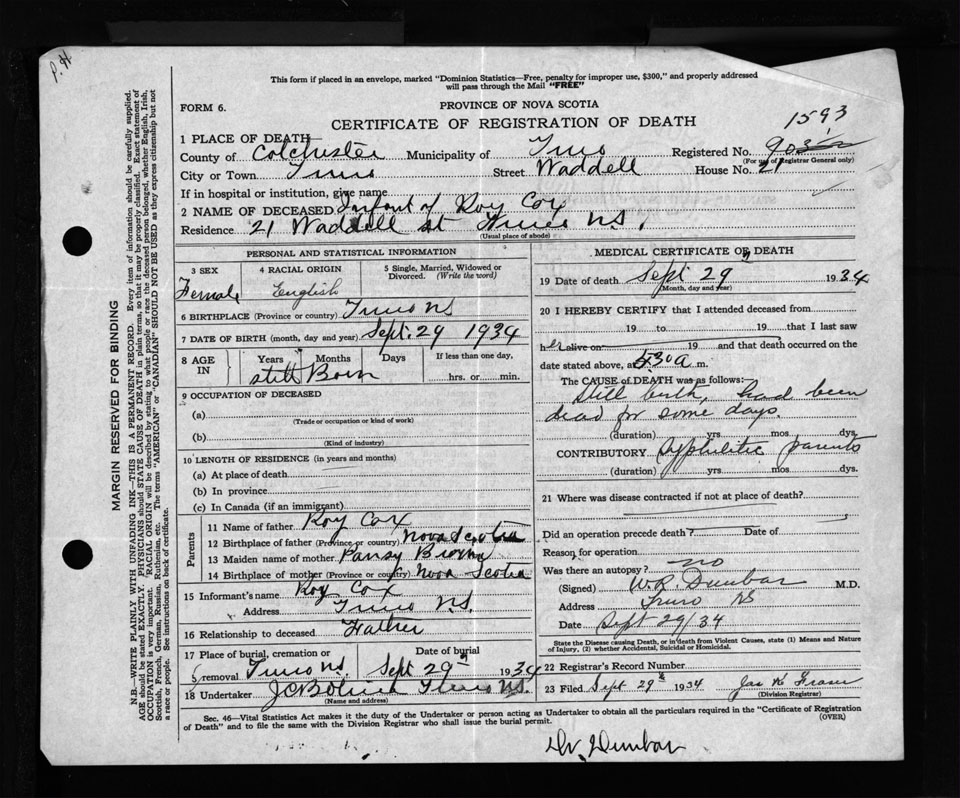 P. H
This form if placed in an envelope, marked "Dominion Statistics—Free, penalty for improper use, $300," and properly addressed
will pass through the Mail "FREE"
FORM 6.
PROVINCE OF NOVA SCOTIA
CERTIFICATE OF REGISTRATION OF DEATH
1593
1 PLACE OF DEATH
County of Colchester Municipality of Truro Registered No. 903
(For use of Registrar General only)
City or Town Truro Street Waddell House No. 21
If in hospital or institution, give name
2 NAME OF DECEASED Infant of Roy Cox
Residence 21 Waddell st Truro N.S.
(Usual place of abode)
PERSONAL AND STATISTICAL INFORMATION
3 SEX
Female
4 RACIAL ORIGIN
English
5 Single, Married, Widowed or
Divorced. (Write the word)
6 BIRTHPLACE (Province or country) Truro NS
7 DATE OF BIRTH (month, day and year) Sept. 29 1934
8 AGE IN
Years Months Days If less than one day,
Still Born
hrs. or min.
9 OCCUPATION OF DECEASED
(a)
(Trade or occupation or kind of work)
(b)
(Kind of industry)
10 LENGTH OF RESIDENCE (in years and months)
(a) At place of death
(b) In province
(c) In Canada (if an immigrant)
Parents
11 Name of father Roy Cox
12 Birthplace of father (Province or country) Nova Scotia
13 Maiden name of mother Pansy Brown
14 Birthplace of mother (Province or country) Nova Scotia
15 Informant's name Roy Cox
Address Truro N.S.
16 Relationship to deceased Father
17 Place of burial, cremation or
removal Truro NS
Date of burial
Sept 29 1934
18 Undertaker Truro N.S.
(Name and address)
MEDICAL CERTIFICATE OF DEATH
19 Date of death Sept 29 1934
(Month, day and year)
20 I HEREBY CERTIFY that I attended deceased from
19 to 19 that I last saw
her alive on 19 and that death occurred on the
date stated above, at 5.30 a m.
The CAUSE of DEATH was as follows:
Still birth, had been
dead for some days.
(duration) yrs mos dys.
CONTRIBUTORY Syphilitic parents
(duration) yrs mos dys.
21 Where was disease contracted if not at place of death?
Did an operation precede death? Date of
Reason for operation
Was there an autopsy? no
(Signed) W.R. Dunbar M.D.
Address Truro NS
Date Sept 29/34
State the Disease causing Death, or in death from Violent Causes, state (1) Means and Nature
of Injury, (2) whether Accidental, Suicidal or Homicidal.
22 Registrar's Record Number
23 Filed Sept 29 1934 Jas K Fraser
(Division Registrar)
Sec. 46—Vital Statistics Act makes it the duty of the Undertaker or person acting as Undertaker to obtain all the particulars required in the "Certificate of Registration
of Death" and to file the same with the Division Registrar who shall issue the burial permit.
(OVER)
Dr. Dunbar
MARGIN RESERVED FOR BINDING
N.B.—WRITE PLAINLY WITH UNFADING INK—THIS IS A PERMANENT RECORD. Every item of information should be carefully supplied.
AGE should be stated EXACTLY. PHYSICIANS should STATE CAUSE OF DEATH in plain terms, so that it may be properly classified. Exact statement of
OCCUPATION is very important. "RACIAL ORIGIN" will be described by stating to what people or race the deceased person belonged, whether English, Irish,
Scottish, French, German, Russian, Ruthenian, etc. The terms "AMERICAN" or "CANADIAN" SHOULD NOT BE USED as they express citizenship but not
a race or people. See instructions on back of certificate.